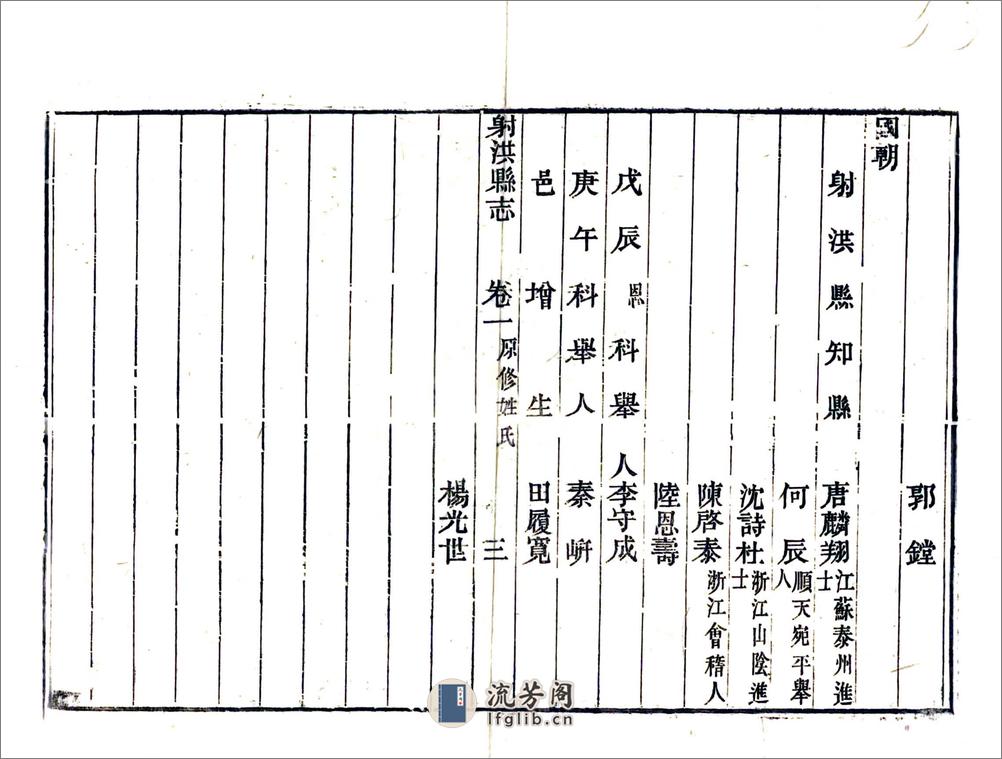 郭鏜
國朝
射洪縣知縣 唐麟翔 江蘇泰州進士
何辰 順天宛平舉人
沈詩杜 浙江山陰進士
陳啓泰 浙江會稽人
陸恩壽
戊辰恩科舉人 李守成
庚午科舉人 秦㟭
邑增生 田履寬
射洪縣志 卷一 原修姓氏 三
楊光世
流芳阁
lfglib.cn